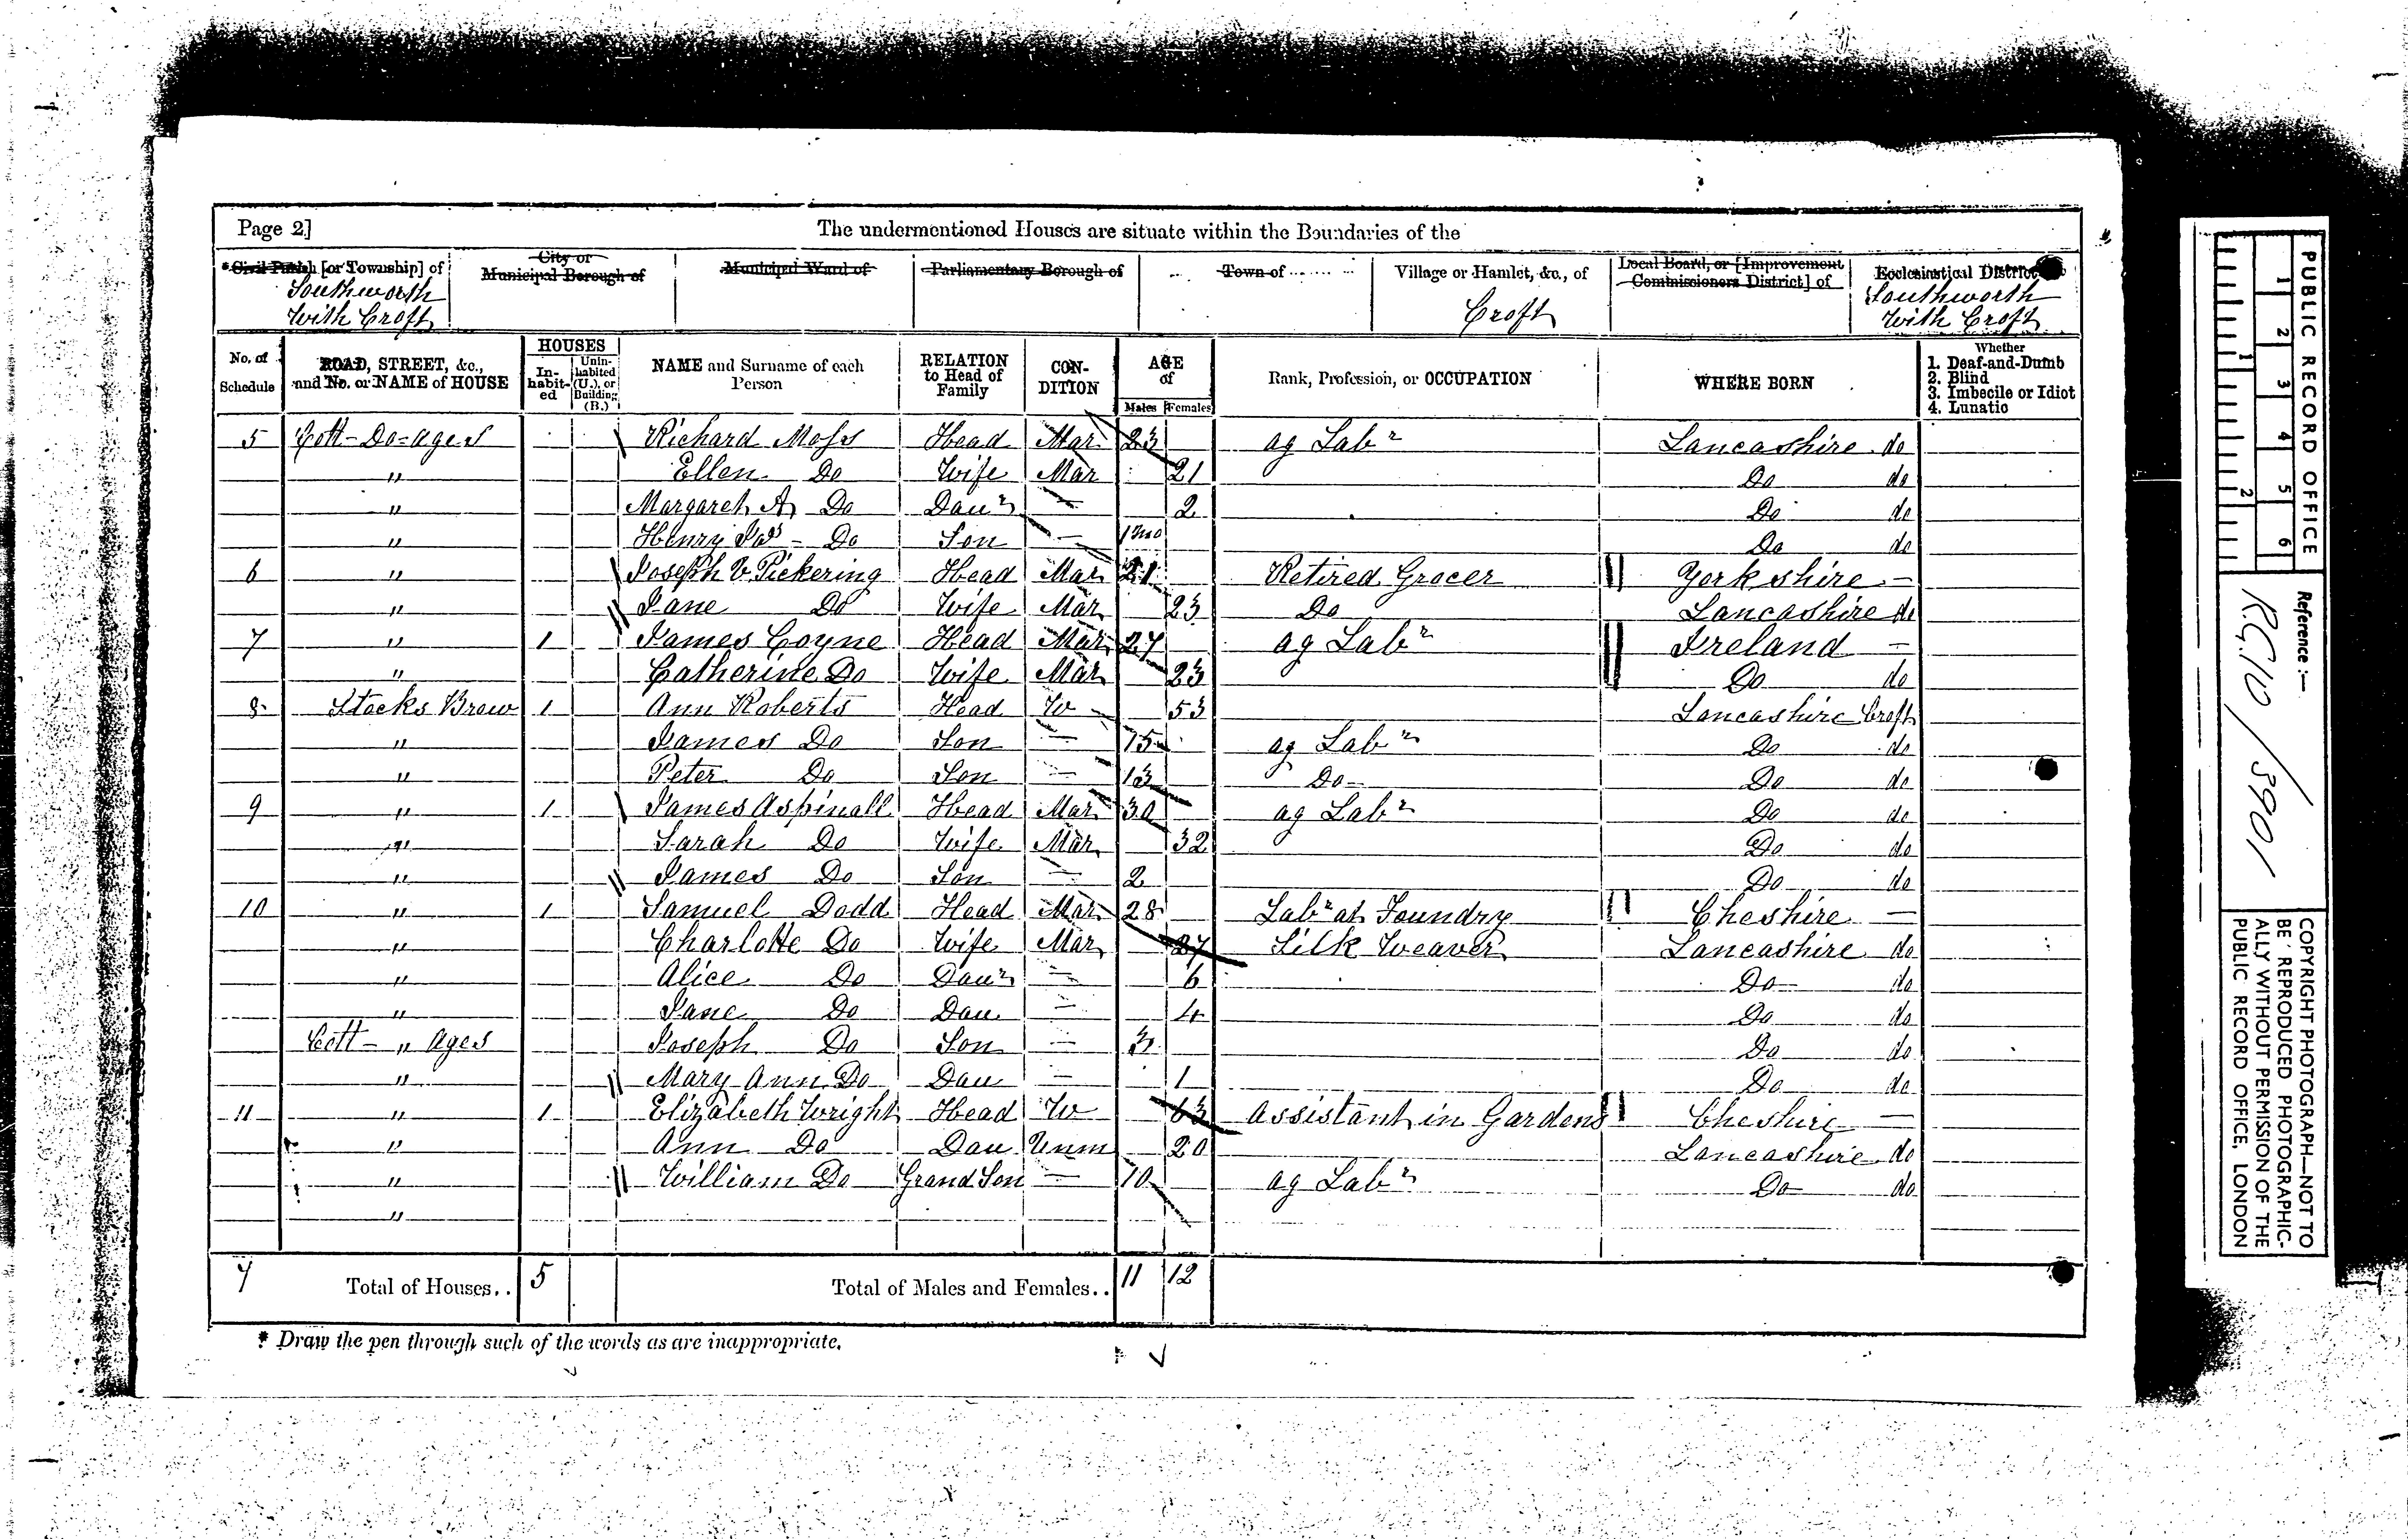 Page 2] The undermentioned Houses are situate within the Boundaries of the
*Civil Parish [or Township] of Southworth With Croft
City or Municipal Borough of
Municipal Ward of
Parliamentary Borough of
Town of
Village or Hamlet, &c., of Croft
Local Board, or [Improvement Commissioners District] of
Ecclesiastical District Southworth With Croft
No. of Schedule
ROAD, STREET, &c., and No. or NAME of HOUSE
HOUSES
In-habit-ed
Unin-habited (U.), or Building (B.)
NAME and Surname of each Person
RELATION to Head of Family
CON-DITION
AGE of
Males Females
Rank, Profession, or OCCUPATION
WHERE BORN
Whether
1. Deaf-and-Dumb
2. Blind
3. Imbecile or Idiot
4. Lunatic
5 Cott-Do=ages Richard Moss Head Mar 23 ag Labr Lancashire do
" Ellen Do Wife Mar 21 Do do
" Margaret A Do Daur — 2 Do do
" Henry Jas - Do Son — 1mo Do do
6 " Joseph V Pickering Head Mar 21 Retired Grocer Yorkshire —
" Jane Do Wife Mar 23 Do Lancashire do
7 " 1 James Coyne Head Mar 27 ag Labr Ireland —
" Catherine Do Wife Mar 23 Do do
8 Stocks Brow 1 Ann Roberts Head W 53 Lancashire Croft
" James Do Son — 15 ag Labr Do do
" Peter Do Son — 13 Do Do do
9 " 1 James Aspinall Head Mar 30 ag Labr Do do
" Sarah Do Wife Mar 32 Do do
" James Do Son — 2 Do do
10 " 1 Samuel Dodd Head Mar 28 Labr at Foundry Cheshire —
" Charlotte Do Wife Mar 27 Silk Weaver Lancashire do
" Alice Do Daur — 6 Do do
" Jane Do Dau — 4 Do do
Cott - " ages Joseph Do Son — 3 Do do
" Mary Ann Do Dau — 1 Do do
11 " 1 Elizabeth Wright Head W 63 Assistant in Gardens Cheshire —
" Ann Do Dau Unm 20 Lancashire do
" William Do Grand Son — 10 ag Labr Do do
"
7 Total of Houses.. 5 Total of Males and Females.. 11 12
* Draw the pen through such of the words as are inappropriate.
PUBLIC RECORD OFFICE
1 2 3 4 5 6
1 2
Reference :—
RG 10 / 3901
COPYRIGHT PHOTOGRAPH—NOT TO
BE REPRODUCED PHOTOGRAPHIC-
ALLY WITHOUT PERMISSION OF THE
PUBLIC RECORD OFFICE, LONDON